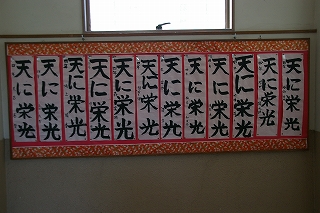 天に栄光
天に栄光
天に栄光
天に栄光
天に栄光
天に栄光
天に栄光
天に栄光
天に栄光
天に栄光
天に栄光
天に栄光